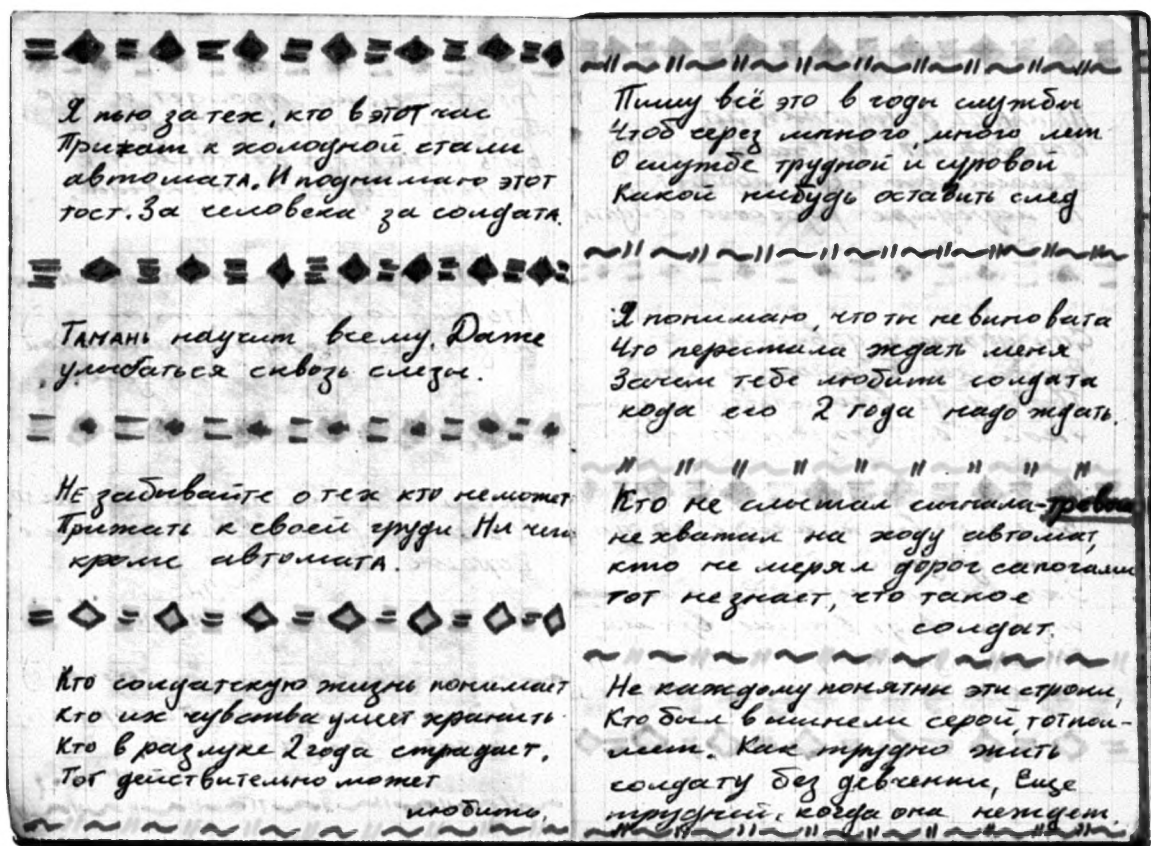 Я пью за тех, кто в этот час
Прижат к холодной стали
автомата. И поднимаю этот
тост. За человека за солдата.
Тамань научит всему. Даже
улыбаться сквозь слезы.
Не забывайте о тех кто неможет
Прижать к своей груди Ни чего
кроме автомата.
Кто солдатскую жизнь понимает
Кто их чувства умеет хранить
Кто в разлуке 2 года страдает,
Тот действительно может
любить.
Пишу всё это в годы службы
Чтоб через много много лет
О службе трудной и суровой
Какой нибудь оставить след
Я понимаю, что ты не виновата
Что перестала ждать меня
Зачем тебе любить солдата
кода его 2 года надо ждать.
Кто не слыхал сигнала-тревога
не хватал на ходу автомат,
кто не мерял дорог сапогами
тот не знает, что такое
солдат.
Не каждому понятны эти строки,
Кто был в шинели серой, тот пой-
мет. Как трудно жить
солдату без девченки, Еще
трудней, когда она неждет.